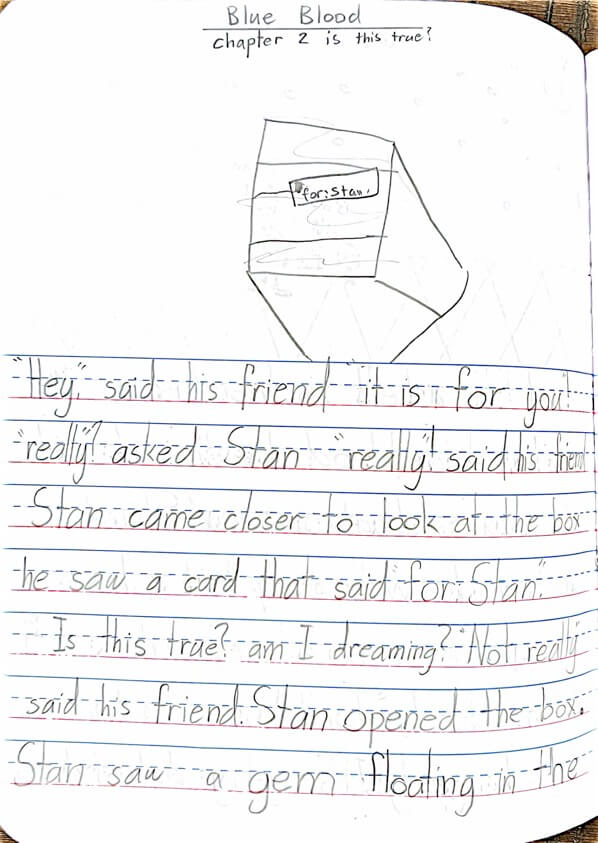 Blue Blood
chapter 2 is this true?
for: Stan.
"Hey," said his friend "it is for you!"
"really"? asked Stan "really"! said his friend
Stan came closer to look at the box
he saw a card that said "for: Stan."
Is this true? am I dreaming? "Not really"
said his friend. Stan opened the box.
Stan saw a gem floating in the